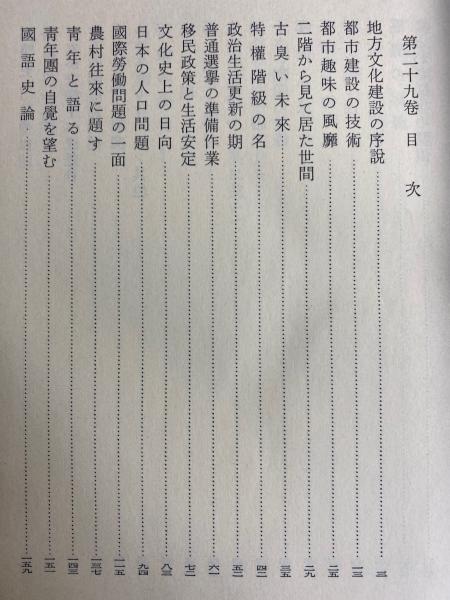 第二十九卷 目次
地方文化建設の序説 三
都市建設の技術 一三
都市趣味の風靡 二五
二階から見て居た世間 二九
古臭い未來 三五
特權階級の名 四二
政治生活更新の期 五二
普通選擧の準備作業 六一
移民政策と生活安定 七二
文化史上の日向 八三
日本の人口問題 九四
國際勞働問題の一面 一一五
農村往來に題す 一三七
靑年と語る 一四三
靑年團の自覺を望む 一五一
國語史論 一五九